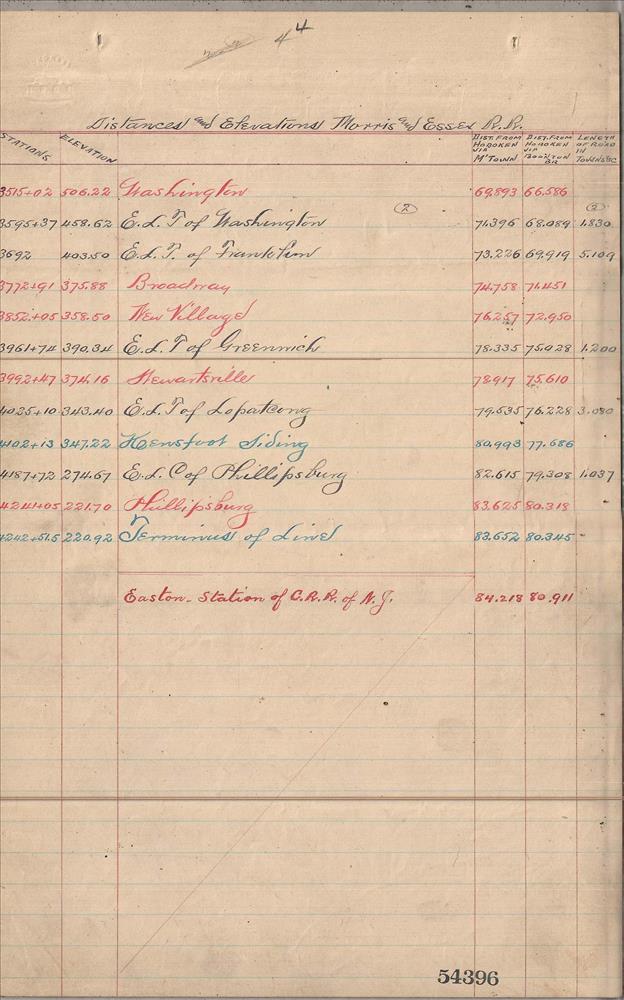 44
Distances and Elevations Morris and Essex R.R.
STATIONS ELEVATION DIST. FROM HOBOKEN VIA M'TOWN DIST. FROM HOBOKEN VIA BOONTON BR LENGTH OF ROAD IN TOWNS &C
3515+02 506.22 Washington 69.893 66.586
3595+37 458.62 E.L.T of Washington (2) 71.396 68.089 (2) 1.830
3692 403.50 E.L.T. of Franklin 73.226 69.919 5.109
3772+91 375.88 Broadway 74.758 71.451
3852+05 358.50 New Village 76.257 72.950
3961+74 390.34 E.L.T of Greenwich 78.335 75.028 1.200
3992+47 374.16 Stewartsville 78.917 75.610
4025+10 343.40 E.L.T of Lopatcong 79.535 76.228 3.080
4102+13 347.22 Hensfoot Siding 80.993 77.686
4187+72 274.67 E.L.C of Phillipsburg 82.615 79.308 1.037
4241+05 221.70 Phillipsburg 83.625 80.318
4242+51.5 220.92 Terminus of Line 83.652 80.345
Easton - Station of C.R.R. of N.J. 84.218 80.911
54396